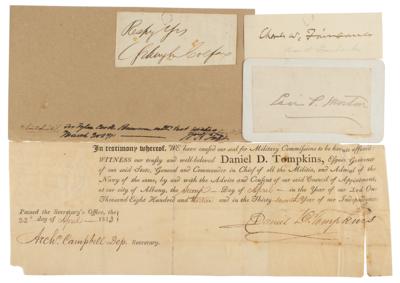 Respy Yrs
Schuyler Colfax
Charles W. Fairbanks
Levi P. Morton
In testimony whereof, We have caused our seal for Military Commissions to be hereunto affixed:
WITNESS our trusty and well-beloved Daniel D. Tompkins, Esquire Governor
of our said State, General and Commander in Chief of all the Militia, and Admiral of the
Navy of the same, by and with the Advice and Consent of our said Council of Appointment,
at our city of Albany, the Day of April in the Year of our Lord One
Thousand Eight Hundred and and in the Thirty Year of our Independence.
Passed the Secretary's Office, the
22d day of April 1813
Archd. Campbell Dep. Secretary.
Daniel D. Tompkins